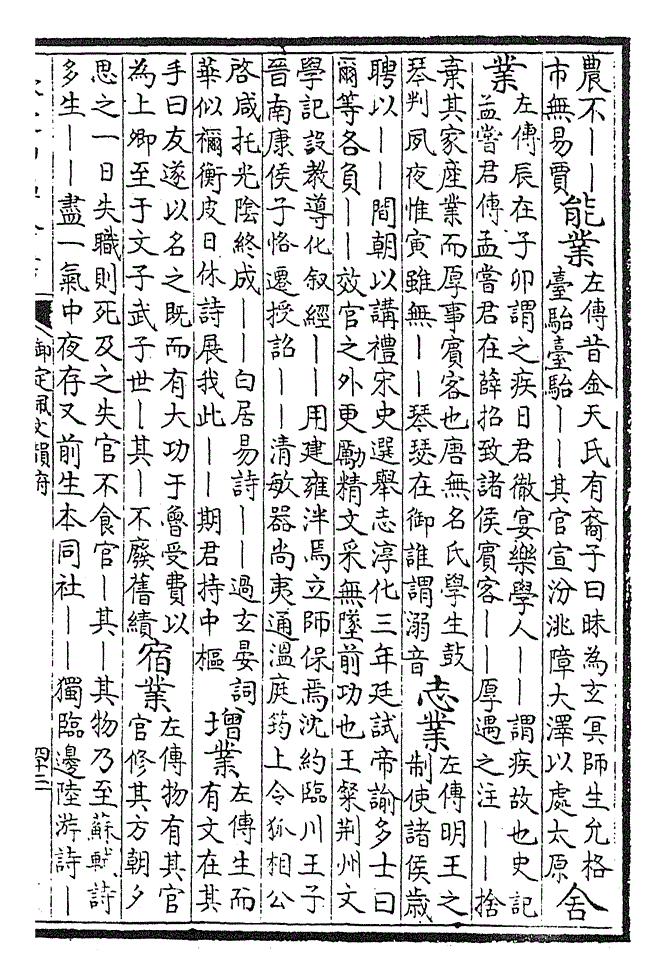 農不——
市無易賈
能業
左傳昔金天氏有裔子曰昧為玄冥師生允格
臺駘臺駘——其官宣汾洮障大澤以處太原
舍
業
左傳辰在子卯謂之疾日君徹宴樂學人——謂疾故也史記
孟嘗君傳孟嘗君在薛招致諸侯賓客——厚遇之注——捨
棄其家産業而厚事賓客也唐無名氏學生鼓
琴判夙夜惟寅雖無——琴瑟在御誰謂溺音
志業
左傳明王之
制使諸侯歲
聘以——間朝以講禮宋史選舉志淳化三年廷試帝諭多士曰
爾等各負——效官之外更勵精文采無墜前功也王粲荆州文
學記設教導化叙經——用建雍泮焉立師保焉沈約臨川王子
晉南康侯子恪遷授詔——清敏器尚夷通溫庭筠上令狐相公
啓咸托光陰終成——白居易詩——過玄晏詞
華似禰衡皮日休詩展我此——期君持中樞
增業
左傳生而
有文在其
手曰友遂以名之既而有大功于魯受費以
為上卿至于文子武子世—其—不廢舊績
宿業
左傳物有其官
官修其方朝夕
思之一日失職則死及之失官不食官—其—其物乃至蘇軾詩
多生——盡一氣中夜存又前生本同社——獨臨邊陸游詩—
御定佩文韻府